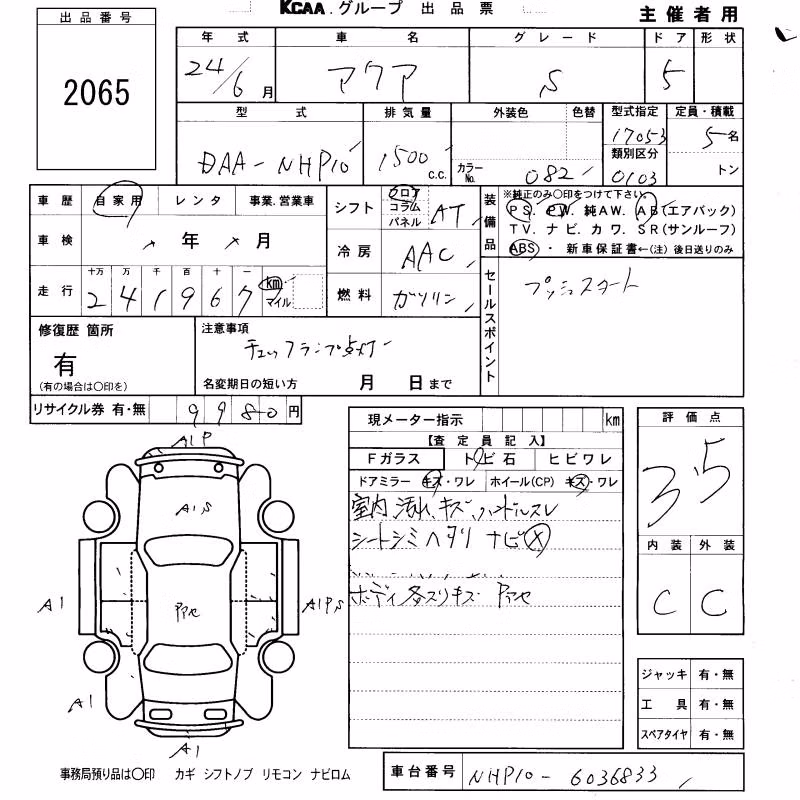 KCAA.グループ 出品票
主催者用
出品番号
2065
年式 車名 グレード ドア 形状
24/6月 アクア S 5
型式 排気量 外装色 色替 型式指定 定員・積載
DAA-NHP10 1500 c.c. カラーNo. 082 17053 5名
類別区分
0103 トン
車歴 自家用 レンタ 事業.営業車
車検 年 月
走行 十万 万 千 百 十 一
241967 km マイル
シフト フロア コラム パネル AT
冷房 AAC
燃料 ガソリン
装備品
※純正のみ○印をつけて下さい。
PS. PW. 純AW. AB(エアバック)
TV. ナビ. カワ. SR(サンルーフ)
ABS・ 新車保証書←(注)後日送りのみ
セールスポイント
プッシュスタート
修復歴 箇所
有
(有の場合は○印を)
注意事項
チェックランプ点灯
名変期日の短い方 月 日まで
リサイクル券 有・無 9980円
現メーター指示 km
【査定員記入】
Fガラス トビ石 ヒビワレ
ドアミラー キズ・ワレ ホイール(CP) キズ・ワレ
室内 汚れ キズ ハンドルスレ
シートシミ ヘタリ ナビ×
ボディ各スリキズ
評価点
3.5
内装 外装
C C
A1P
A1S
A1
A1PS
A1
A1
ジャッキ 有・無
工具 有・無
スペアタイヤ 有・無
事務局預り品は○印 カギ シフトノブ リモコン ナビロム
車台番号 NHP10-6036833